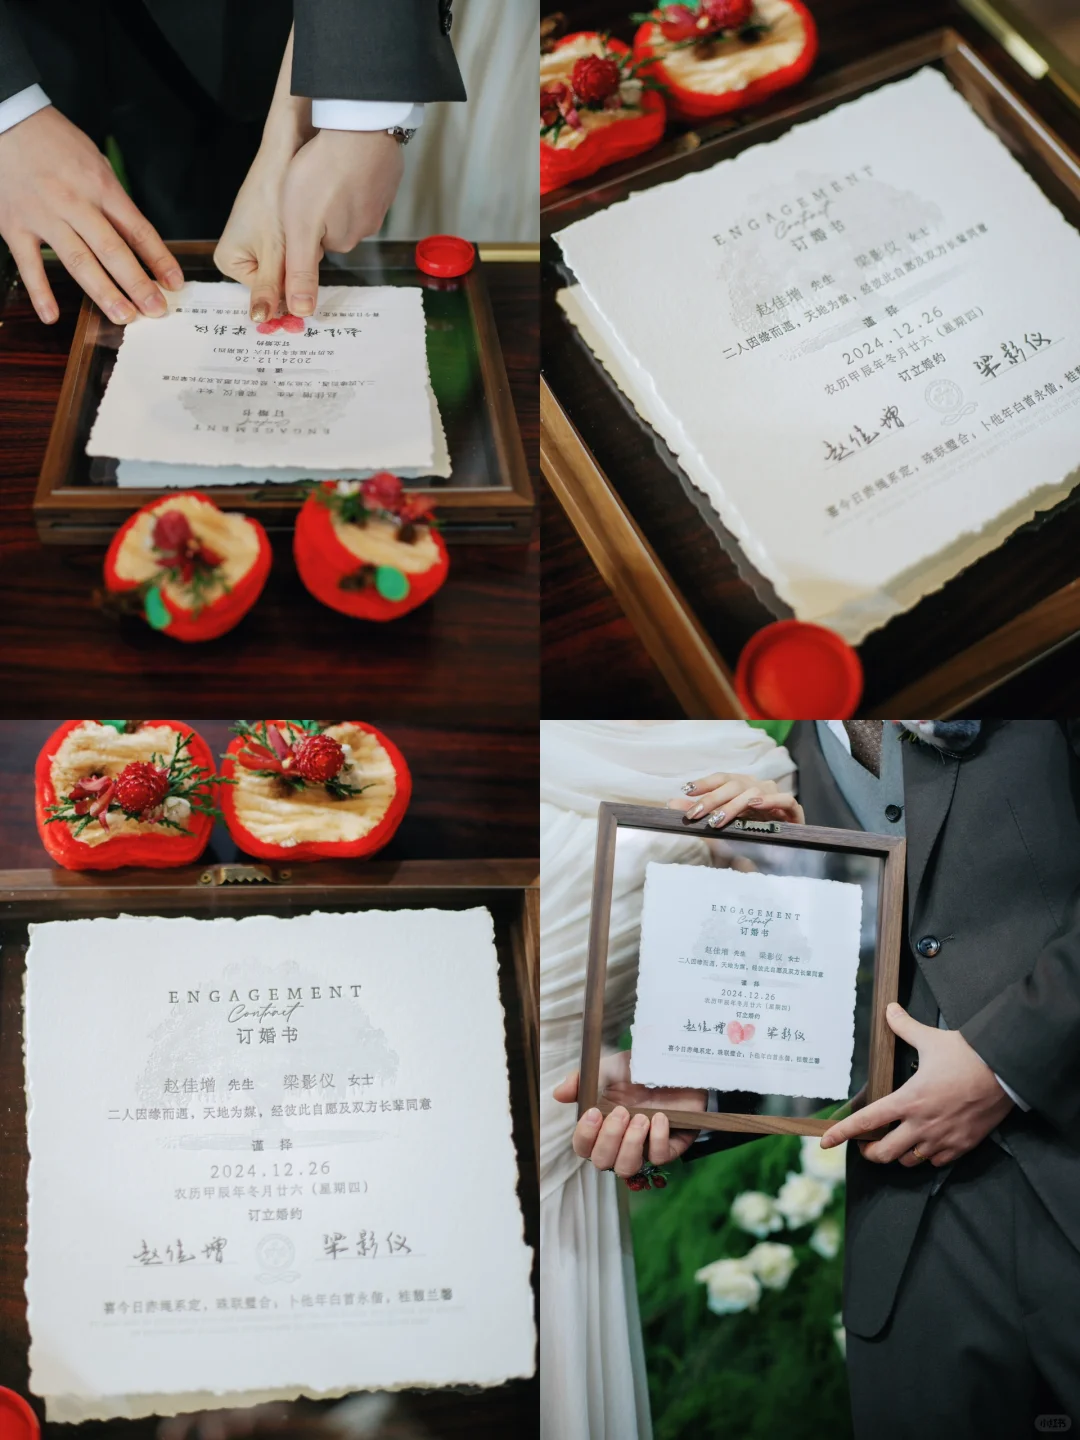 喜今日赤绳系定，珠联璧合，
梁影仪 赵佳增
订立婚约
农历甲辰年冬月廿六（星期四）
2024.12.26
谨 择
二人因缘而遇，天地为媒，经彼此自愿及双方长辈同意
赵佳增 先生 梁影仪 女士
订婚书
Contract
ENGAGEMENT
ENGAGEMENT
Contract
订婚书
赵佳增 先生 梁影仪 女士
二人因缘而遇，天地为媒，经彼此自愿及双方长辈同意
谨 择
2024.12.26
农历甲辰年冬月廿六（星期四）
订立婚约
赵佳增 梁影仪
喜今日赤绳系定，珠联璧合，卜他年白首永偕，桂
ENGAGEMENT
Contract
订婚书
赵佳增 先生 梁影仪 女士
二人因缘而遇，天地为媒，经彼此自愿及双方长辈同意
谨 择
2024.12.26
农历甲辰年冬月廿六（星期四）
订立婚约
赵佳增 梁影仪
喜今日赤绳系定，珠联璧合，卜他年白首永偕，桂馥兰馨
ENGAGEMENT
Contract
订婚书
赵佳增 先生 梁影仪 女士
二人因缘而遇，天地为媒，经彼此自愿及双方长辈同意
谨 择
2024.12.26
农历甲辰年冬月廿六（星期四）
订立婚约
赵佳增 梁影仪
喜今日赤绳系定，珠联璧合，卜他年白首永偕，桂馥兰馨
小红书